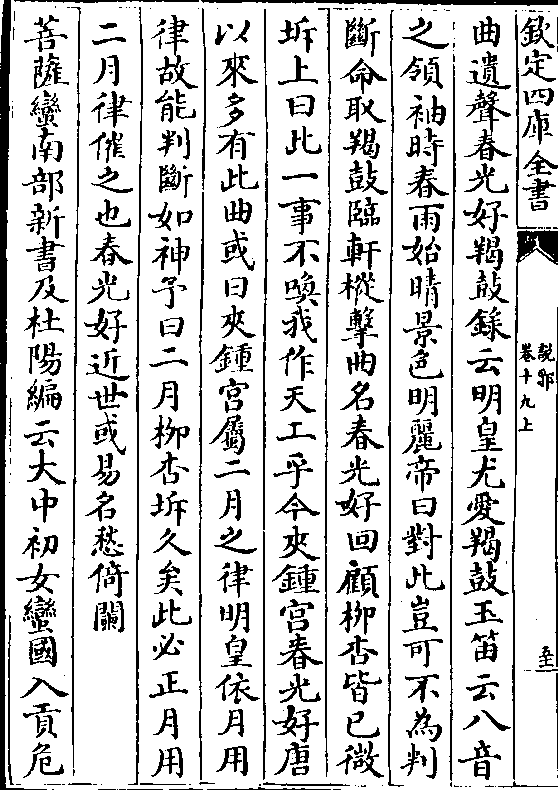 欽定四庫全書
說郛
卷十九上
至
曲遺聲春光好羯鼓錄云明皇尤愛羯鼓玉笛云八音
之領袖時春雨始晴景色明麗帝曰對此豈可不為判
斷命取羯鼓臨軒樅擊曲名春光好回顧柳杏皆已微
坼上曰此一事不喚我作天工乎今夾鍾宮春光好唐
以來多有此曲或曰夾鍾宮屬二月之律明皇依月用
律故能判斷如神予曰二月柳杏坼久矣此必正月用
二月律催之也春光好近世或易名愁倚闌
菩薩蠻南部新書及杜陽編云大中初女蠻國入貢危